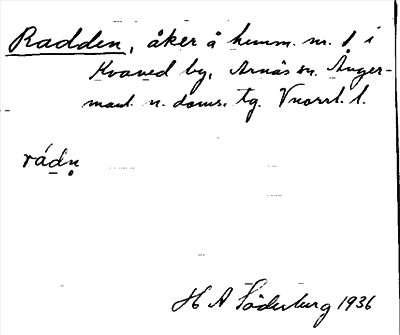 Radden, åker å hemm. nr. 1 i
Kvaved by, Arnäs sn. Ånger-
manl. n. doms. tg. Vnorrl. l.
rádn̥
H A Söderberg 1936